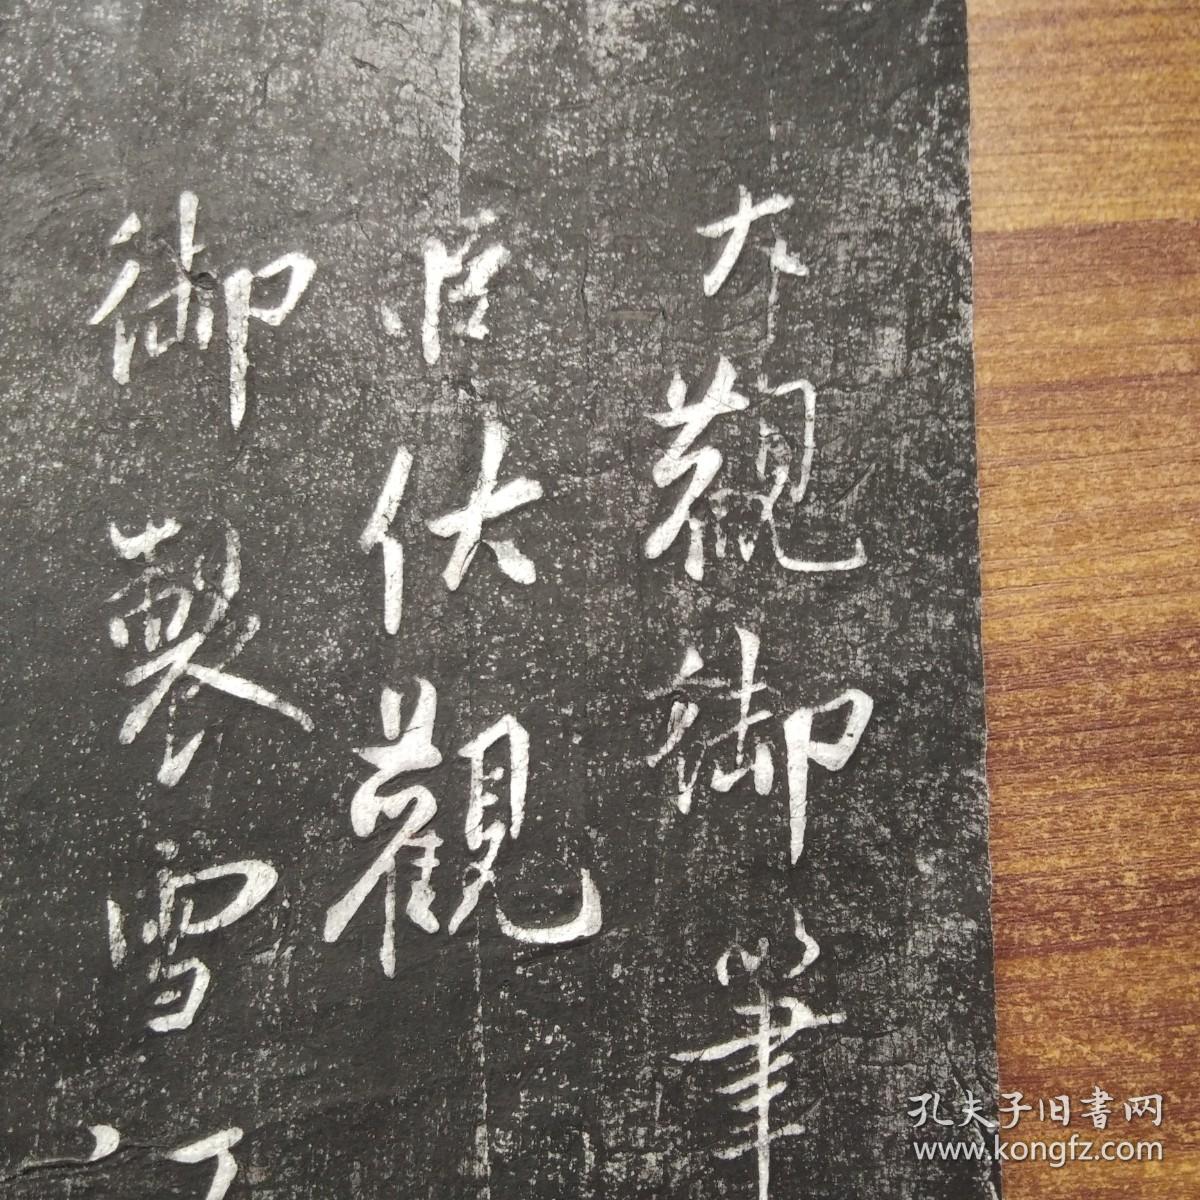 觀御筆
臣伏觀
御製雪
孔夫子旧書网
www.kongfz.com